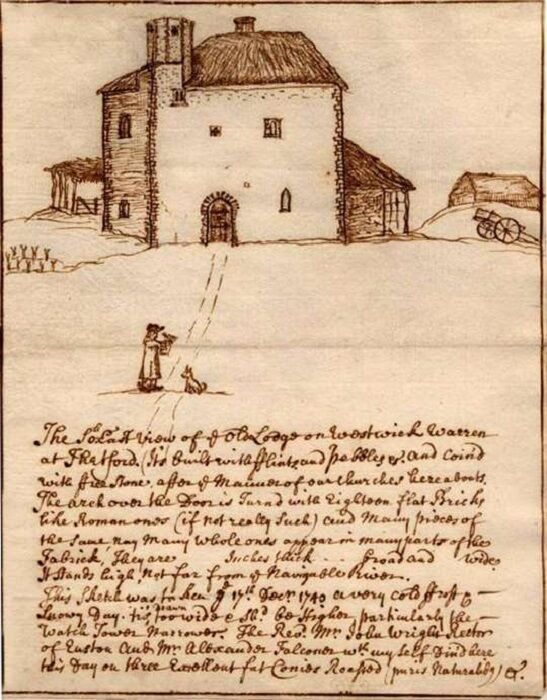 The So. East View of ye Old Lodge on Westwick Warren
at Thetford. (Its built with fflints and pebbles &c. and Coind
with free Stone, after ye Manner of our Churches hereabouts.
The arch over the Door is Turnd with Eighteen flat Bricks
like Roman ones (if not really Such) and Many pieces of
the Same, nay Many whole ones appear in many parts of the
Fabrick, They are Inches thick .. Broad and wide
It stands high, Not far from ye Navigable River.
This Sketch was taken ye 17th. Decr. 1740 a very cold ffrost &
Snowy Day. tis drawn too wide & Shd. be Higher particularly the
Watch Tower Narrower. The Revd. Mr. John Wright Rector
of Euston and Mr. Alexander Falconer wth. my Self Dind here
this Day on three Excellent fat Conies Roasted (puris Naturalibq) &c.